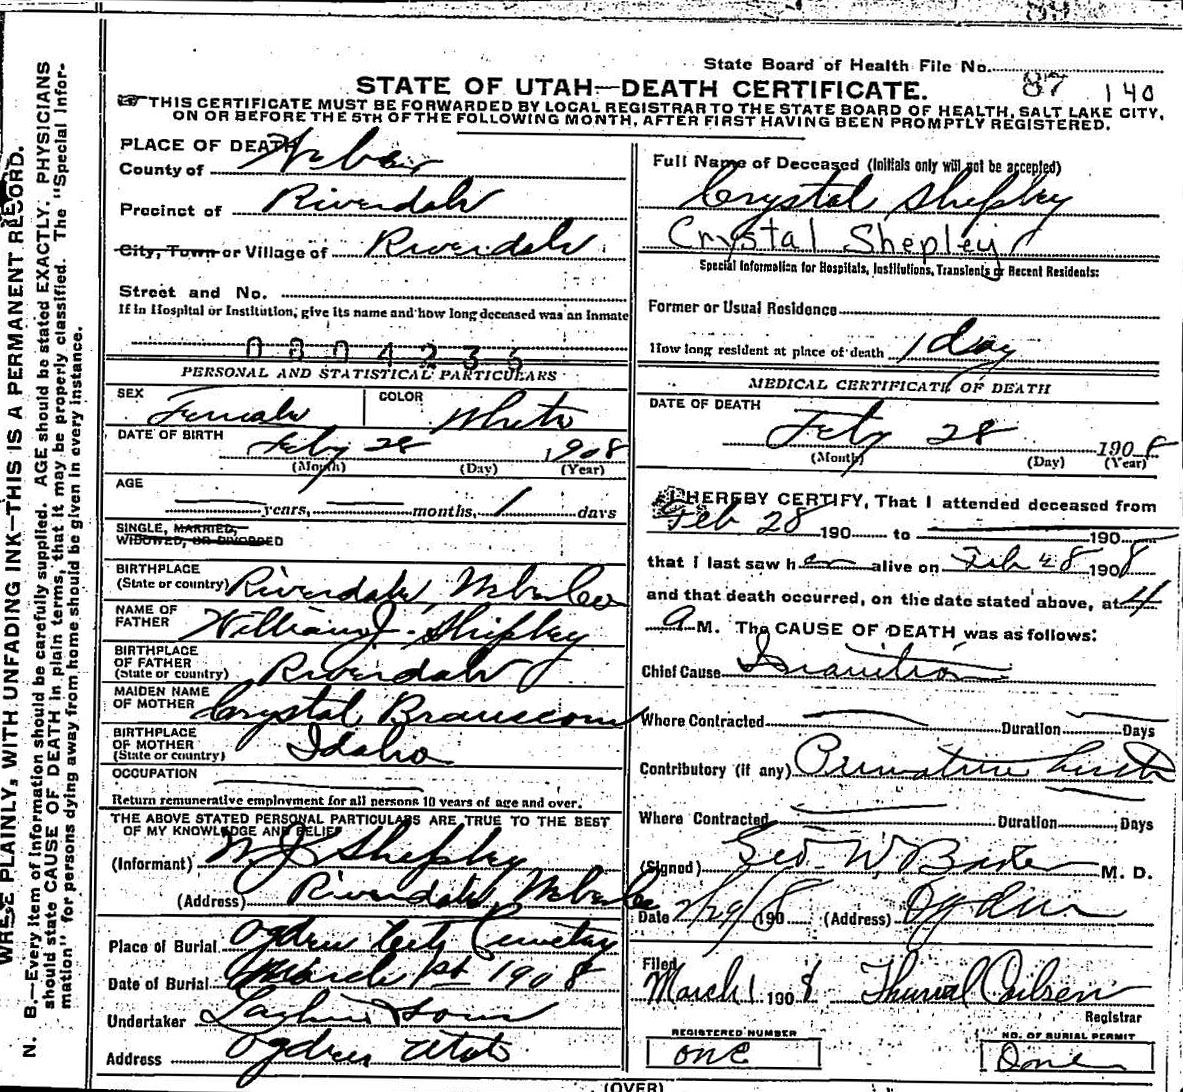 State Board of Health File No. 87 140
STATE OF UTAH—DEATH CERTIFICATE.
THIS CERTIFICATE MUST BE FORWARDED BY LOCAL REGISTRAR TO THE STATE BOARD OF HEALTH, SALT LAKE CITY,
ON OR BEFORE THE 5TH OF THE FOLLOWING MONTH, AFTER FIRST HAVING BEEN PROMPTLY REGISTERED.
PLACE OF DEATH
County of Weber
Precinct of Riverdale
City, Town or Village of Riverdale
Street and No.
If in Hospital or Institution, give its name and how long deceased was an inmate
0304235
PERSONAL AND STATISTICAL PARTICULARS
SEX Female COLOR White
DATE OF BIRTH Feby 28 1908
(Month) (Day) (Year)
AGE
years, months, 1 days
SINGLE, MARRIED,
WIDOWED, OR DIVORCED
BIRTHPLACE
(State or country) Riverdale, Weber Co
NAME OF
FATHER William J. Shepley
BIRTHPLACE
OF FATHER
(State or country) Riverdale
MAIDEN NAME
OF MOTHER Crystal Branscom
BIRTHPLACE
OF MOTHER
(State or country) Idaho
OCCUPATION
Return remunerative employment for all persons 10 years of age and over.
THE ABOVE STATED PERSONAL PARTICULARS ARE TRUE TO THE BEST
OF MY KNOWLEDGE AND BELIEF
(Informant) W J Shepley
(Address) Riverdale, Weber Co
Place of Burial Ogden City Cemetery
Date of Burial March 1st 1908
Undertaker Sons
Address Ogden Utah
Full Name of Deceased (Initials only will not be accepted)
Crystal Shepley
Crystal Shepley
Special Information for Hospitals, Institutions, Transients or Recent Residents:
Former or Usual Residence
How long resident at place of death 1 day
MEDICAL CERTIFICATE OF DEATH
DATE OF DEATH
Feby 28 1908
(Month) (Day) (Year)
I HEREBY CERTIFY, That I attended deceased from
Feb 28 190 to 190
that I last saw her alive on Feb 28 1908
and that death occurred, on the date stated above, at 4
A M. The CAUSE OF DEATH was as follows:
Chief Cause Inanition
Where Contracted Duration Days
Contributory (if any) Premature birth
Where Contracted Duration Days
(Signed) Geo W. Baker M. D.
Date 2/29/8 190 (Address) Ogden
Filed
March 1 1908
Registrar
REGISTERED NUMBER
one
NO. OF BURIAL PERMIT
One
(OVER)
WRITE PLAINLY, WITH UNFADING INK—THIS IS A PERMANENT RECORD.
N. B.—Every item of information should be carefully supplied. AGE should be stated EXACTLY. PHYSICIANS
should state CAUSE OF DEATH in plain terms, that it may be properly classified. The "Special Infor-
mation" for persons dying away from home should be given in every instance.